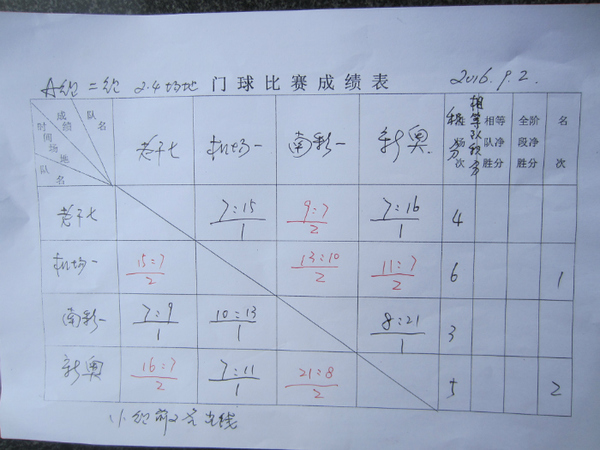 A组 二组 2.4场地 门球比赛成绩表 2016.9.2.
成绩 队名 时间场地 队名 老干七 机场一 南彩一 新奥 积分 场次 相等队积分 相等队净胜分 全阶段净胜分 名次
老干七 7:15/1 9:7/2 7:16/1 4
机场一 15:7/2 13:10/2 11:7/2 6 1
南彩一 7:9/1 10:13/1 8:21/1 3
新奥 16:7/2 7:11/1 21:8/2 5 2
小组前2名出线